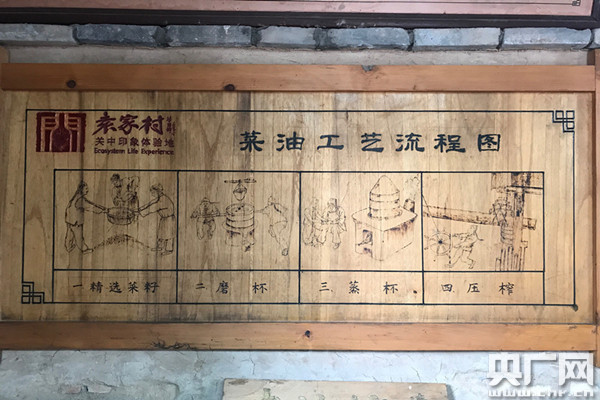 袁家村
关中印象体验地
Ecosystem Life Experience
菜油工艺流程图
一精选菜籽
二磨杯
三.蒸杯
四.压榨
央广网
www.cnr.cn